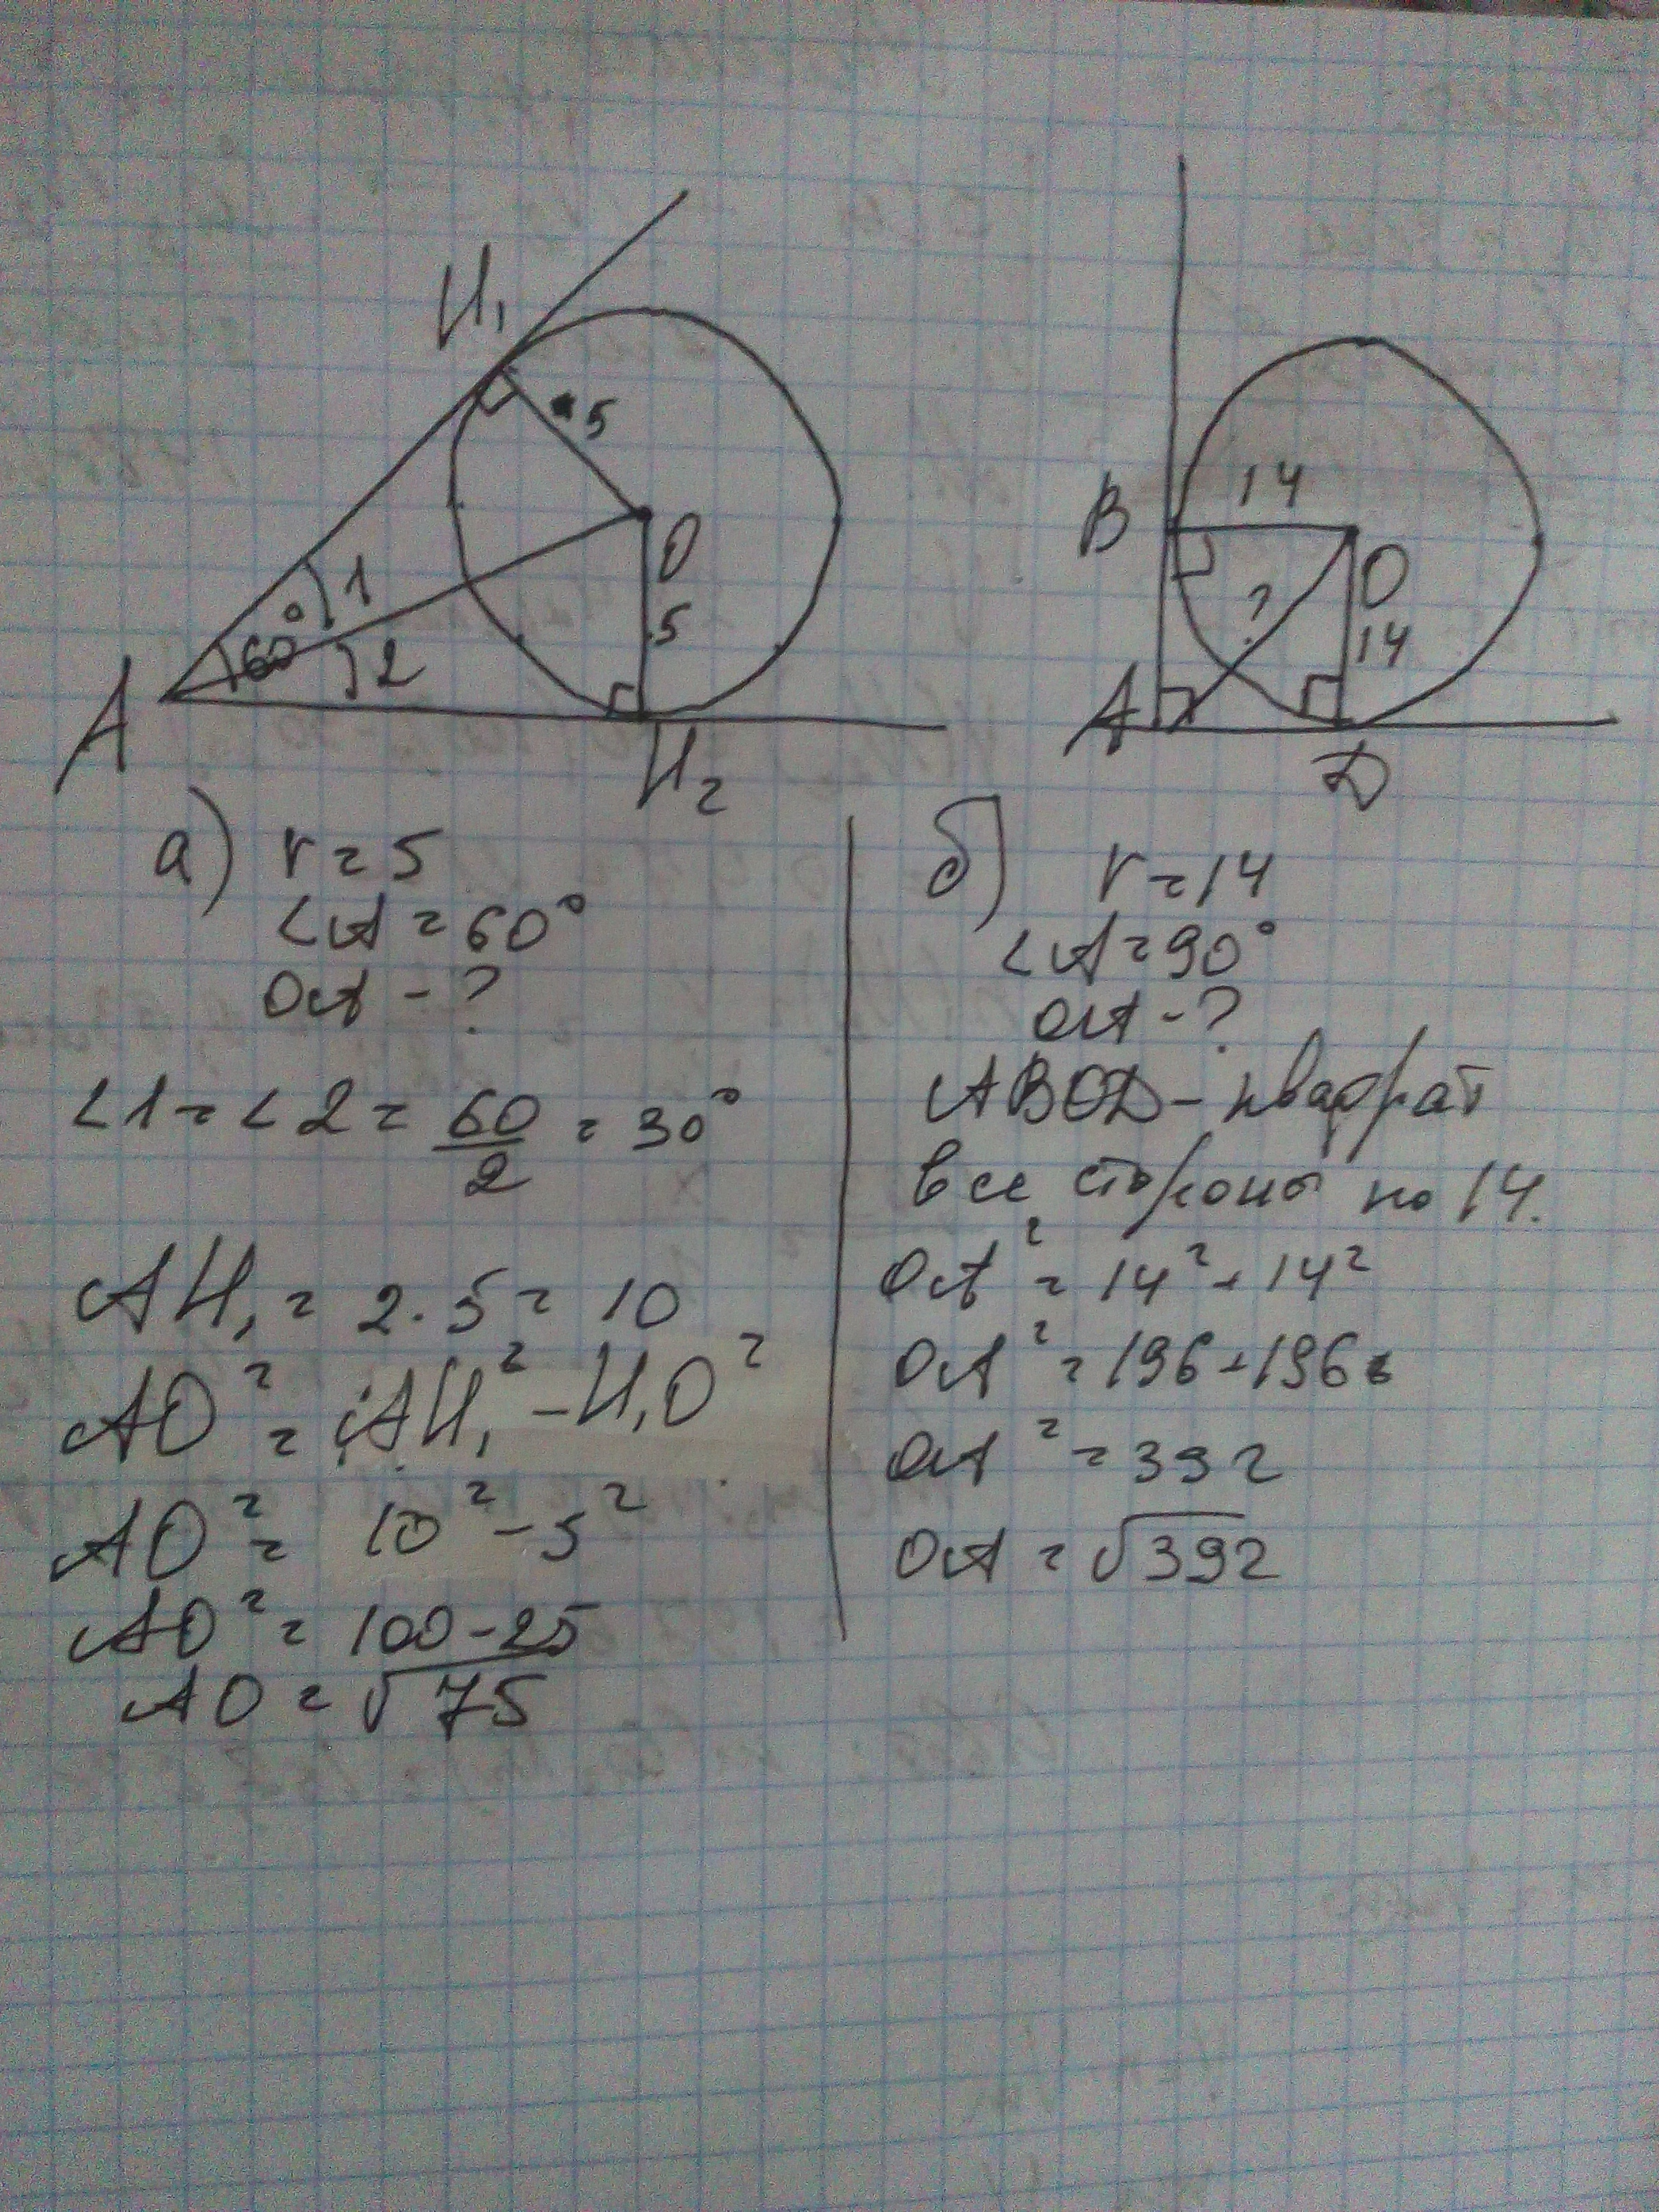 H₁
5
O
1
60°
2
5
A
H₂
14
B
O
?
14
A
D
а) r = 5
∠A = 60°
OA - ?
∠1 = ∠2 = 60/2 = 30°
AH₁ = 2·5 = 10
AO² = AH₁² - H₁O²
AO² = 10² - 5²
AO² = 100 - 25
AO = √75
б) r = 14
∠A = 90°
OA - ?
ABOD - квадрат
все стороны по 14.
OA² = 14² + 14²
OA² = 196 + 196
OA² = 392
OA = √392